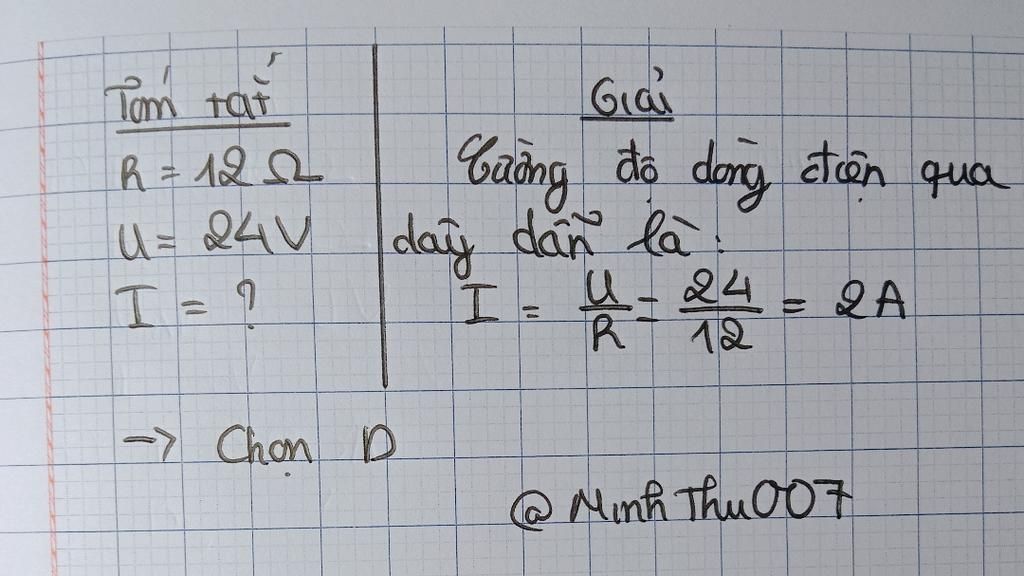 Tóm tắt
R = 12 Ω
U = 24V
I = ?
Giải
Cường độ dòng điện qua
dây dẫn là:
I = U/R = 24/12 = 2A
-> Chọn D
@MinhThu007